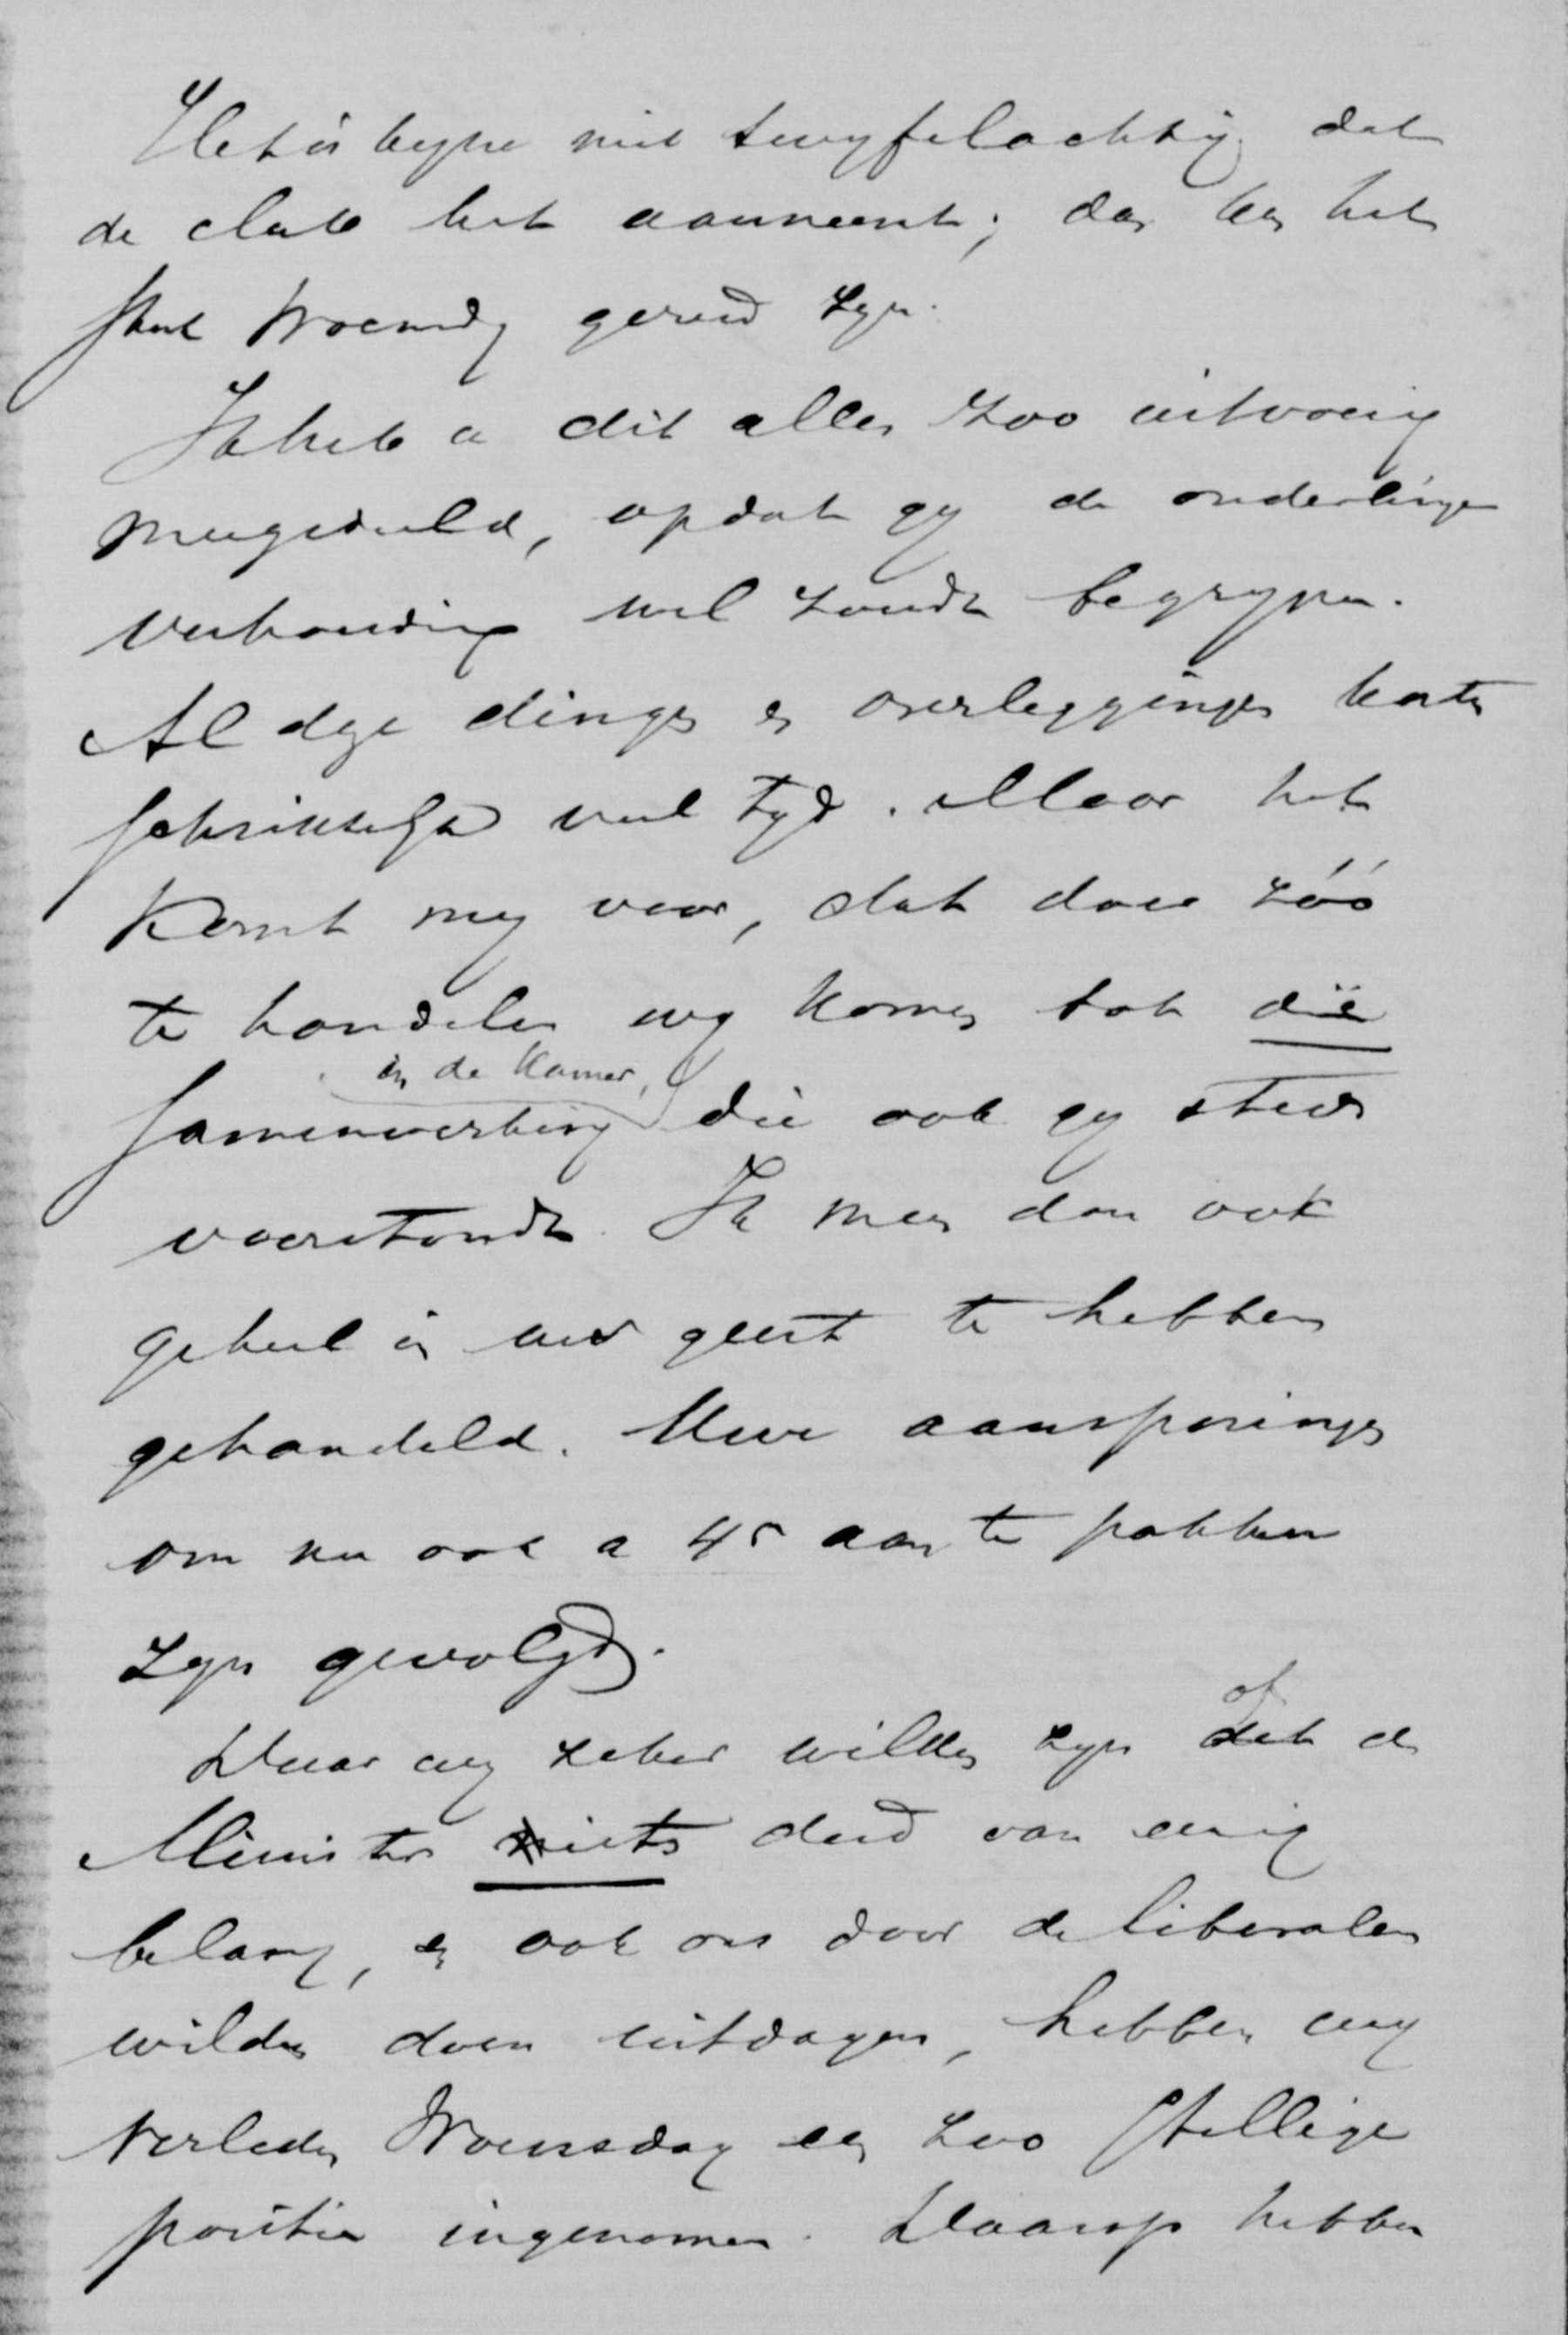 Het is bijna niet twijfelachtig dat
de club het aanneemt; dan kan het
stuk Woensdg gereed zijn.
Ik heb u dit alles zoo uitvoerig
meegedeeld, opdat gij de onderlinge
verhouding wel zoudt begrijpen.
Al deze dingen en overleggingen kosten
schrikkelijk veel tijd. Maar het
komt mij voor, dat door zóó
te handelen wij komen tot die
in de Kamer,
samenwerking die ook gij steeds
voorstondt. Ik meen dan ook
geheel in uw geest te hebben
gehandeld. Uwe aansporingen
om nu ook a 45 aan te pakken
zijn gevolgd.
of
Daar wij zeker wilden zijn dat de
Minister niets deed van eenig
belang, en ook ons door de liberalen
wilden doen uitdagen, hebben wij
verleden Woensdag een zoo stellige
positie ingenomen. Daarop hebben